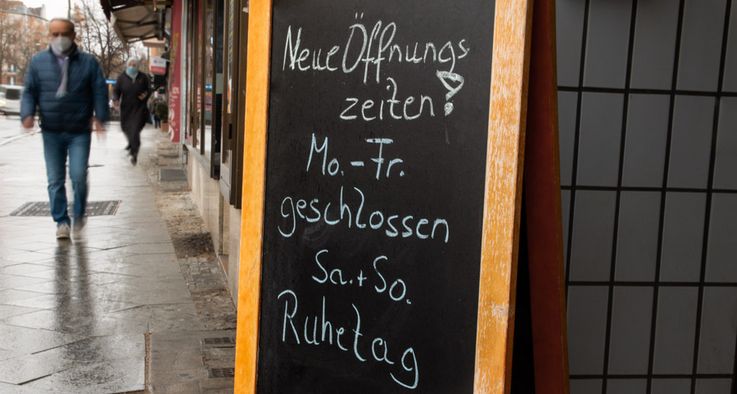 Neue Öffnungs
zeiten!
Mo.-Fr.
geschlossen
Sa.+So.
Ruhetag